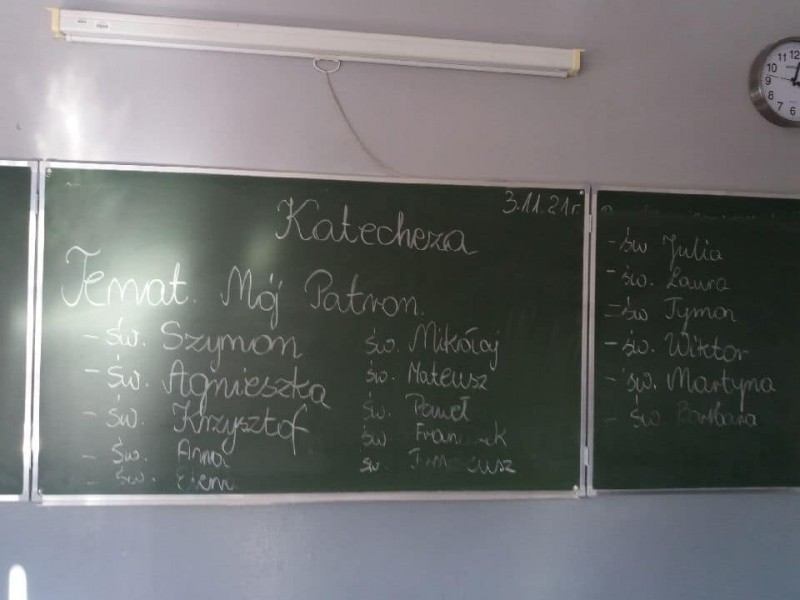 3.11.21r.
Katecheza
Temat. Mój Patron.
- św. Szymon
- św. Agnieszka
- św. Krzysztof
- św. Anna
- św.
św. Mikołaj
św. Mateusz
św. Paweł
św. Franciszek
św.
- św Julia
- św. Laura
- św Tymon
- św. Wiktor
- św. Martyna
- św Barbara
11 12
10
9
8
7 6